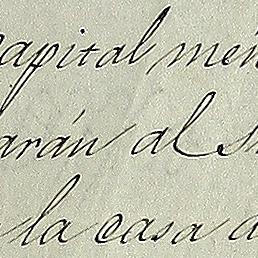 capital men
arán al s
la casa d